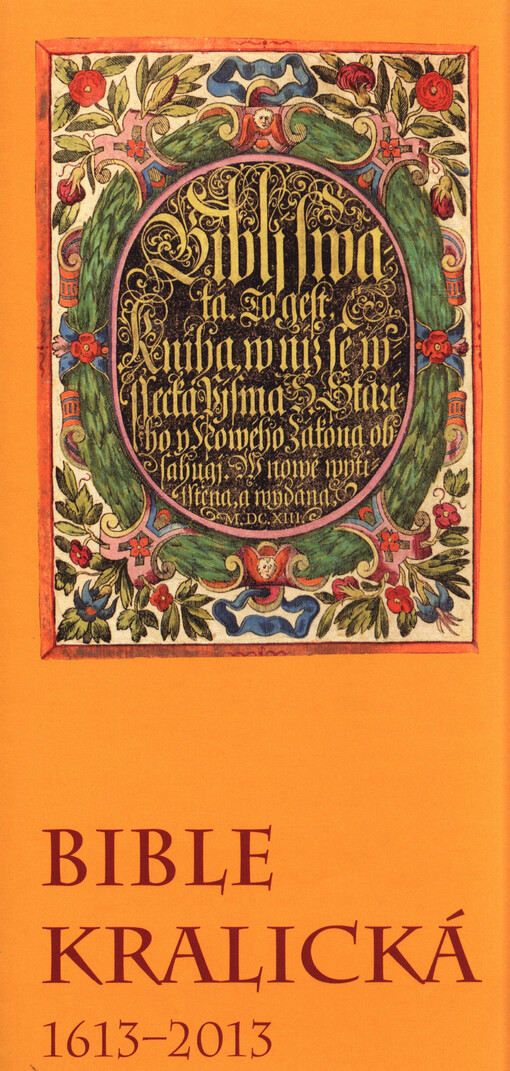 Biblj swa-
ta. To gest,
Kniha, w njž se w-
ssecká Pjsma S. Staré-
ho y Nowého Zákona ob-
sahugj. W nowě wyti-
sstěná, a wydaná.
M. DC. XIII.
BIBLE
KRALICKÁ
1613–2013